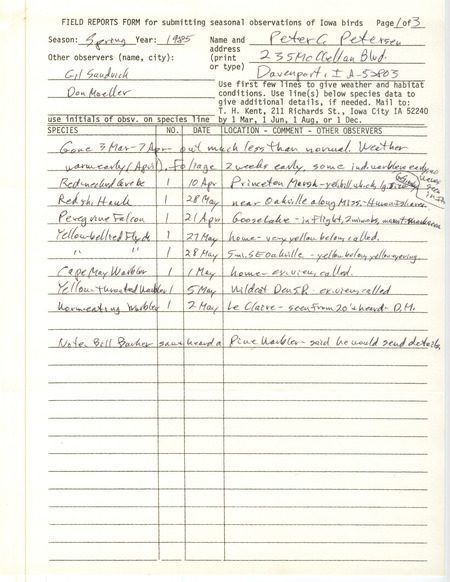 FIELD REPORTS FORM for submitting seasonal observations of Iowa birds Page 1 of 3
Season: Spring Year: 1985 Name and address (print or type) Peter C. Petersen
235 McClellan Blvd.
Davenport, IA 52803
Other observers (name, city):
Gil Sandvick
Don Moeller
Use first few lines to give weather and habitat
conditions. Use line(s) below species data to
give additional details, if needed. Mail to:
T. H. Kent, 211 Richards St., Iowa City IA 52240
use initials of obsv. on species line by 1 Mar, 1 Jun, 1 Aug, or 1 Dec.
SPECIES NO. DATE LOCATION - COMMENT - OTHER OBSERVERS
Gone 3 Mar-7 Apr - out much less than normal. Weather
warm early (April). Foliage 2 weeks early, some
Red-necked Grebe 1 10 Apr Princeton Marsh -
Red sh. Hawk 1 28 May near Oakville along Miss.
Peregrine Falcon 1 21 Apr Goose Lake - in flight, 2 min obs,
Yellow-bellied Flyc 1 27 May home - very yellow below, called.
" " 1 28 May 5 mi. SE Oakville - yellow below, yellow eyering.
Cape May Warbler 1 1 May home - ex. view, called.
Yellow-throated Warbler 1 5 May Wildcat Den S.P. ex. view, called
Worm eating Warbler 1 2 May Le Claire - seen from 20' & heard - D.M.
Note: Bill Barker saw & heard a Pine Warbler - said he would send details.